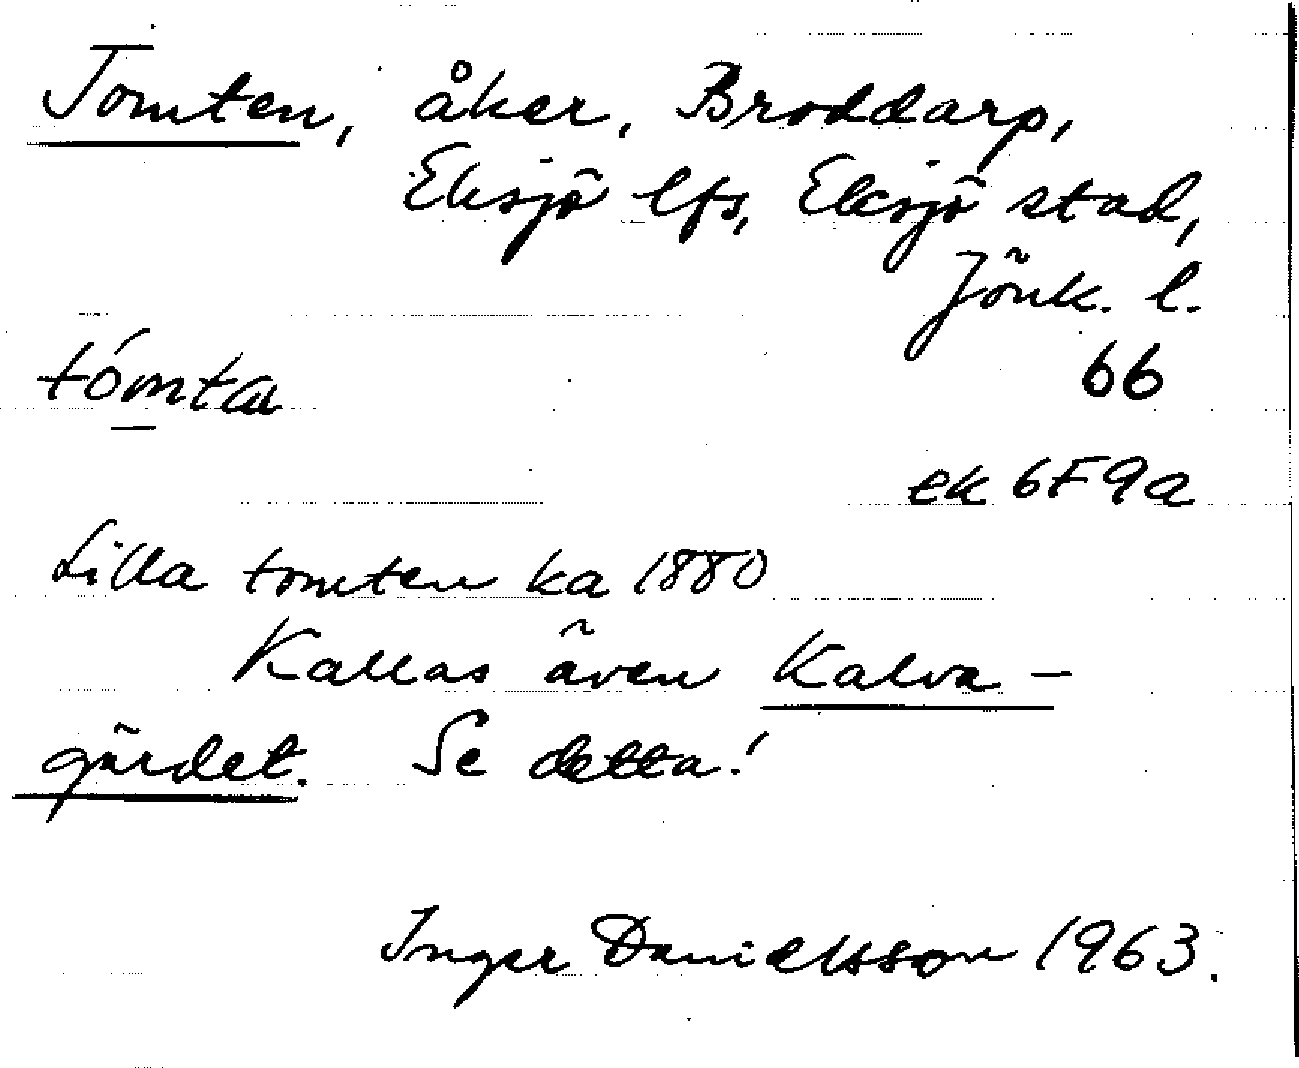 Tomten, åker, Broddarp,
Eksjö lfs, Eksjö stad,
Jönk. l.
tómta
66
ek 6F9a
Lilla tomten ka 1880
Kallas även Kalva-
gärdet. Se detta!
Inger Danielsson 1963.